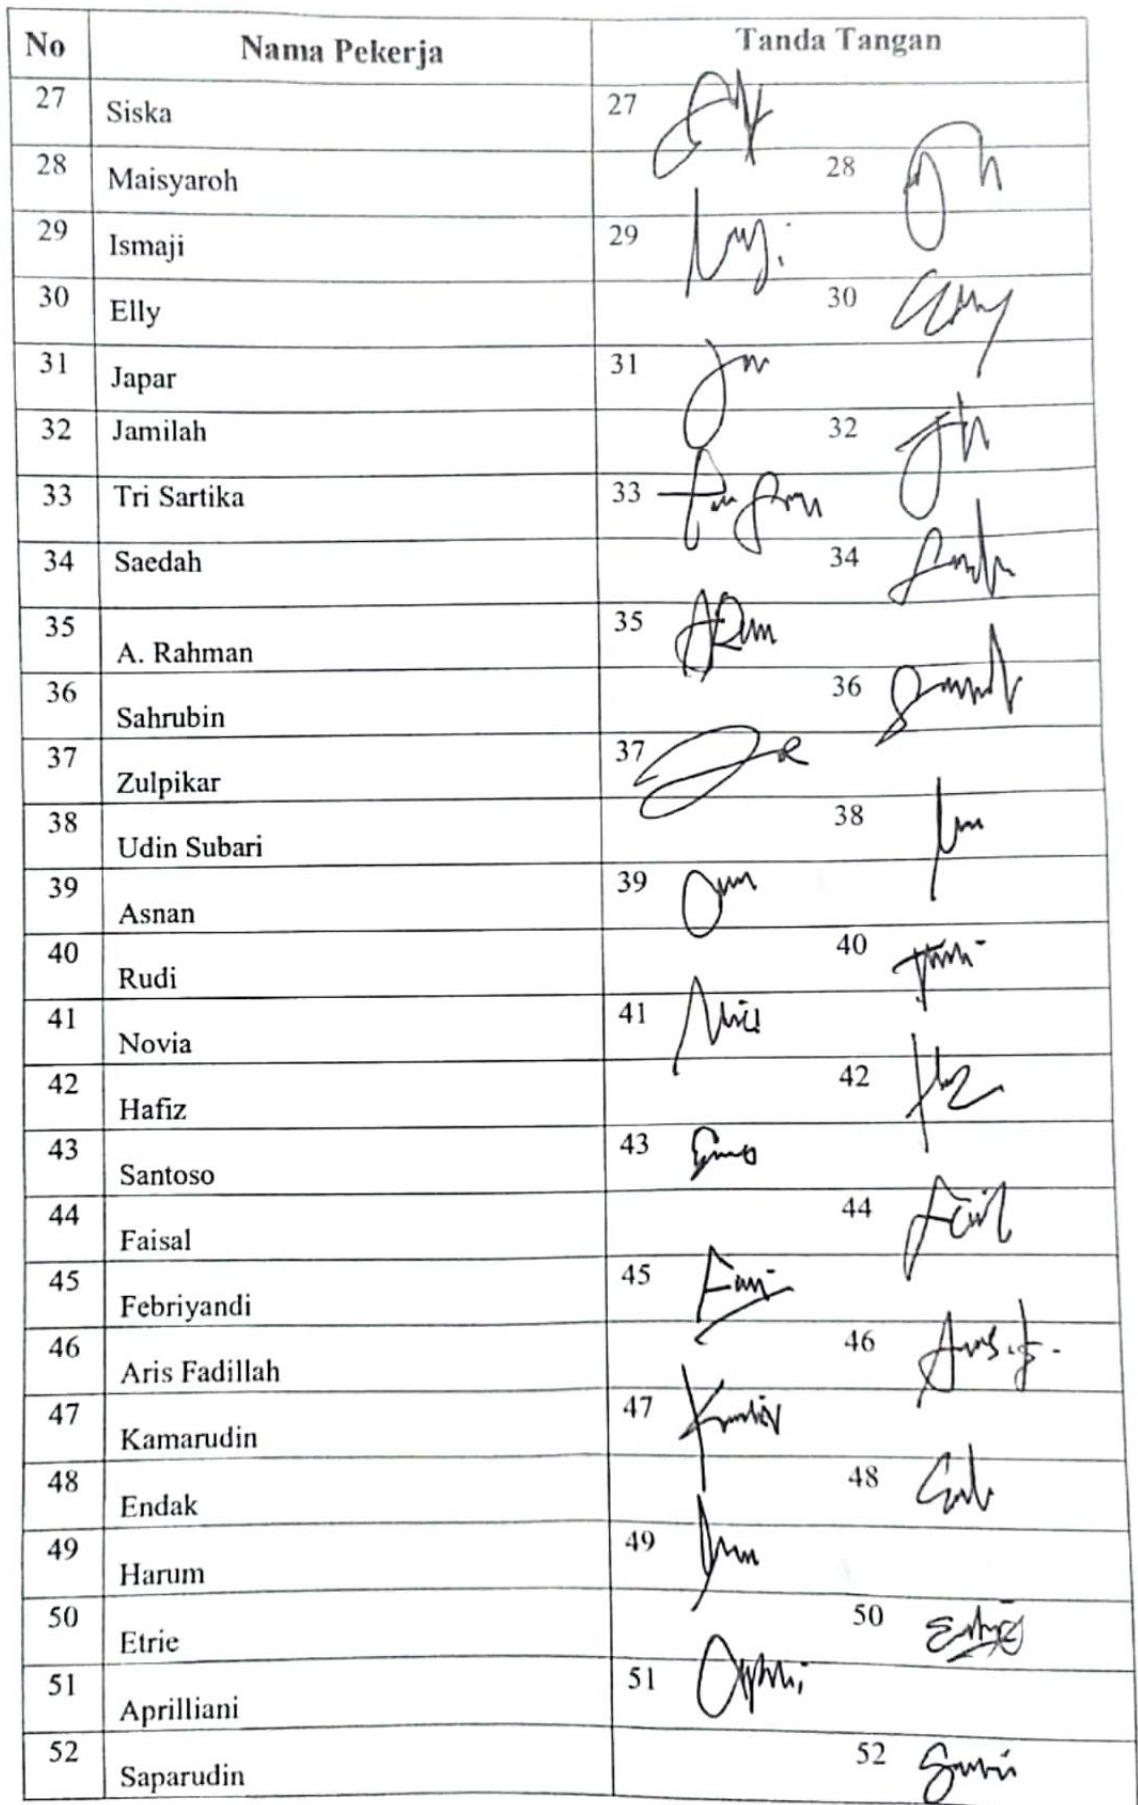 No Nama Pekerja Tanda Tangan
27 Siska 27
28 Maisyaroh 28
29 Ismaji 29
30 Elly 30
31 Japar 31
32 Jamilah 32
33 Tri Sartika 33
34 Saedah 34
35 A. Rahman 35
36 Sahrubin 36
37 Zulpikar 37
38 Udin Subari 38
39 Asnan 39
40 Rudi 40
41 Novia 41
42 Hafiz 42
43 Santoso 43
44 Faisal 44
45 Febriyandi 45
46 Aris Fadillah 46
47 Kamarudin 47
48 Endak 48
49 Harum 49
50 Etrie 50
51 Aprilliani 51
52 Saparudin 52